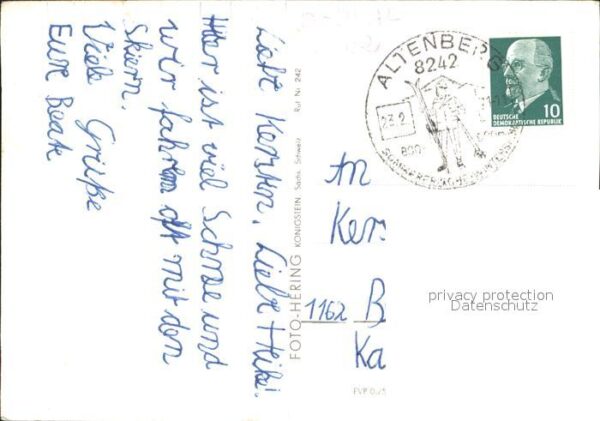 Liebe Kerstin, Liebe Heike!
Hier ist viel Schnee und
wir fahren oft mit den
Skiern.
Viele Grüße
Eure Beate
FOTO-HERING KÖNIGSTEIN Sächs. Schweiz Ruf Nr. 242
ALTENBERG
8242
23.2.
800-
DEUTSCHE 10
DEMOKRATISCHE REPUBLIK
An
Kers
1162 B
Ka
privacy protection
Datenschutz